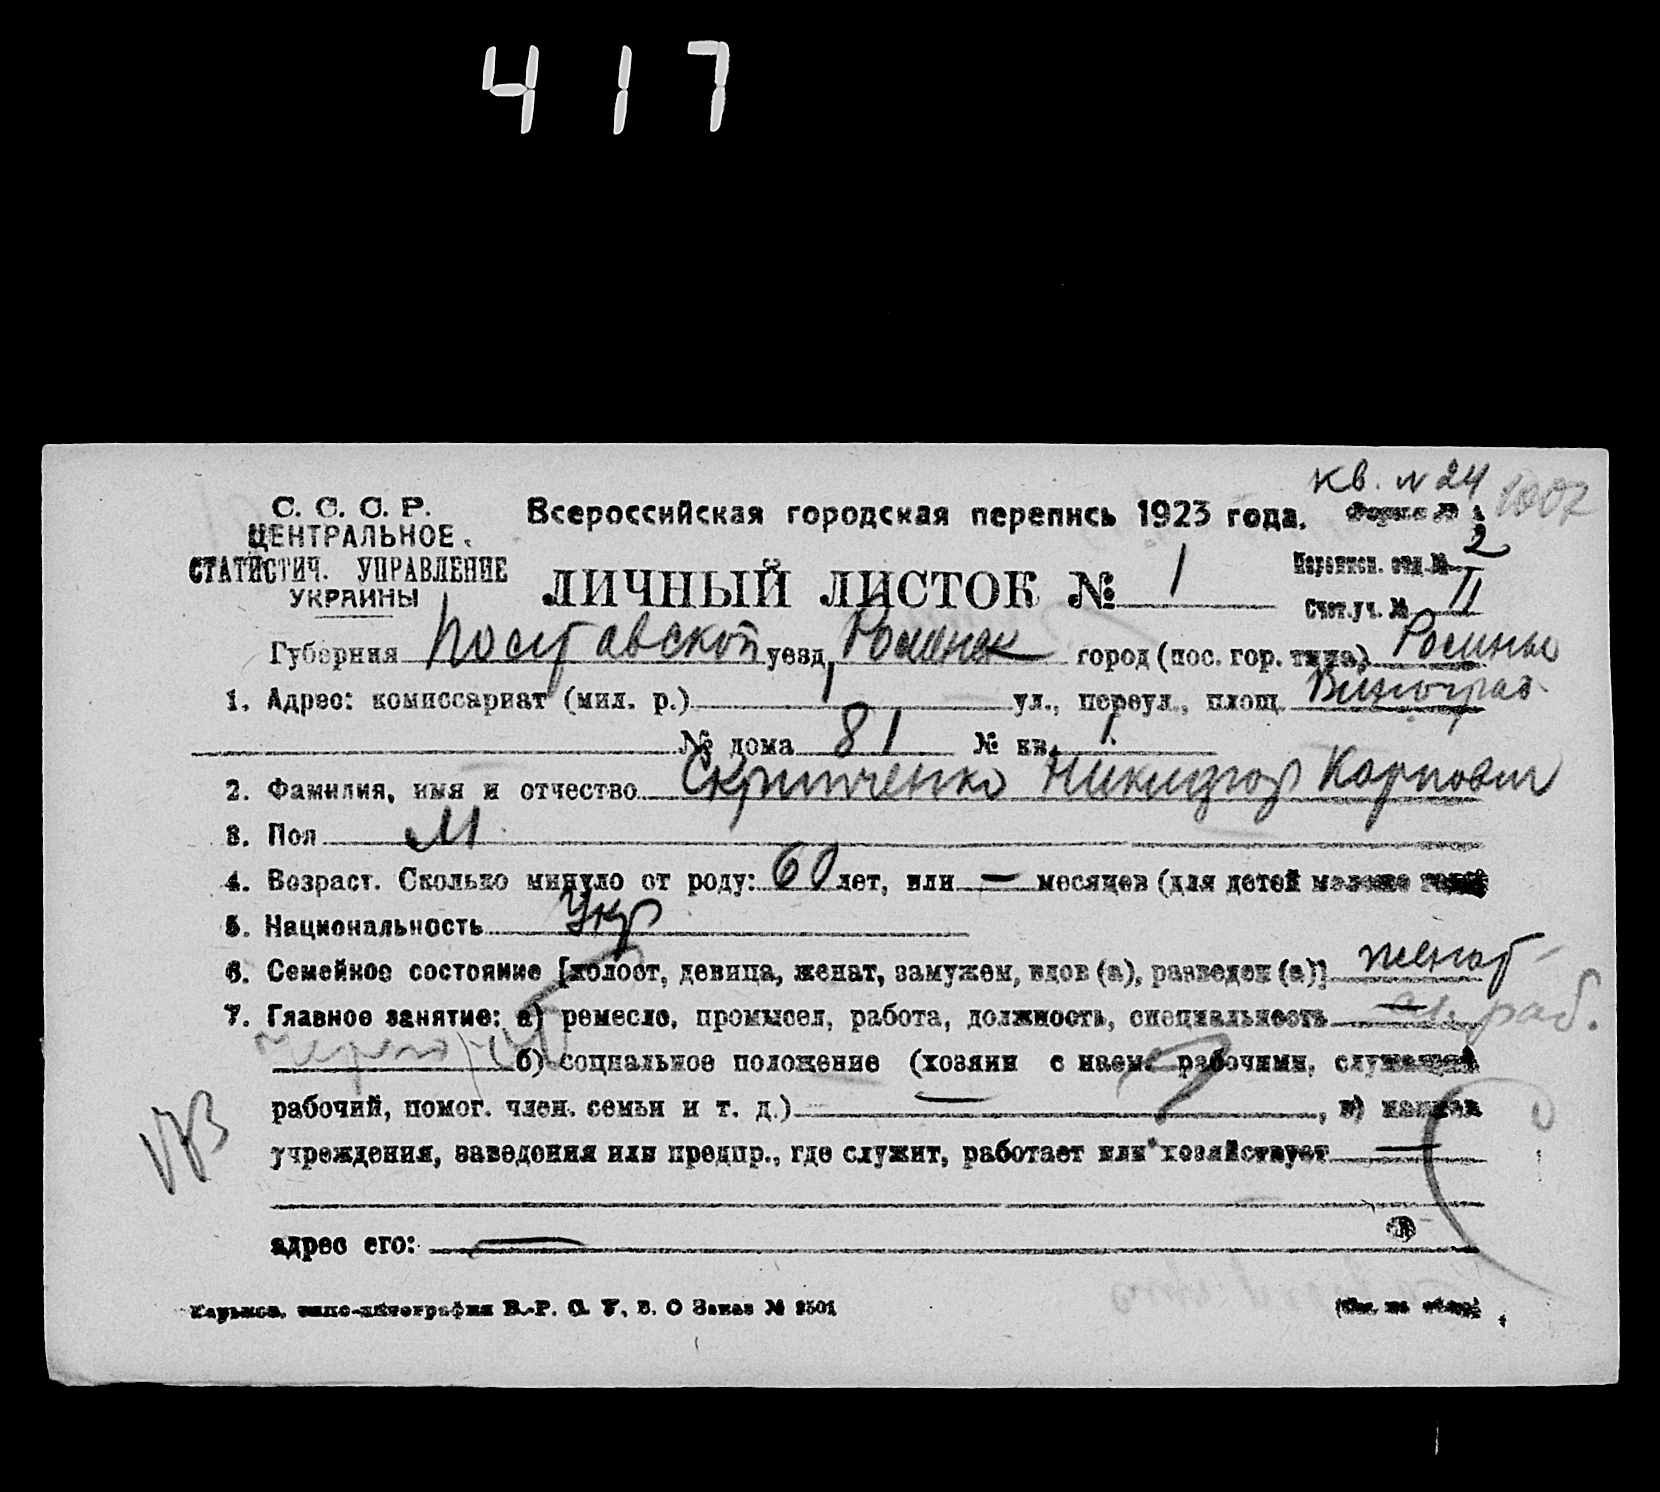 417
кв. № 24 1007
С. С. С. Р.
ЦЕНТРАЛЬНОЕ
СТАТИСТИЧ. УПРАВЛЕНИЕ
УКРАИНЫ
Всероссийская городская перепись 1923 года.
Форма №
ЛИЧНЫЙ ЛИСТОК № 1
Перепися. отд. № 2
Счет. уч. № II
Губерния Полтавской уезд Роменск город (пос. гор. типа) Ромны
1. Адрес: комиссариат (мил. р.) 1 ул., переул., площ. Виноград.
№ дома 81 № кв. 1.
2. Фамилия, имя и отчество Скрипченко Никифор Карпович
3. Пол М
4. Возраст. Сколько минуло от роду: 60 лет, или — месяцев (для детей моложе года)
5. Национальность Укр
6. Семейное состояние [холост, девица, женат, замужем, вдов (а), разведен (а)] женат
7. Главное занятие: а) ремесло, промысел, работа, должность, специальность — раб.
б) социальное положение (хозяин с наем. рабочими, служащий
рабочий, помог. член. семьи и т. д.) —, в) назван
учреждения, заведения или предпр., где служит, работает или хозяйствует —
адрес его: —
Харьков, типо-литография В.-Р. С. У. В. О Заказ № 2501
(См. на обор.)